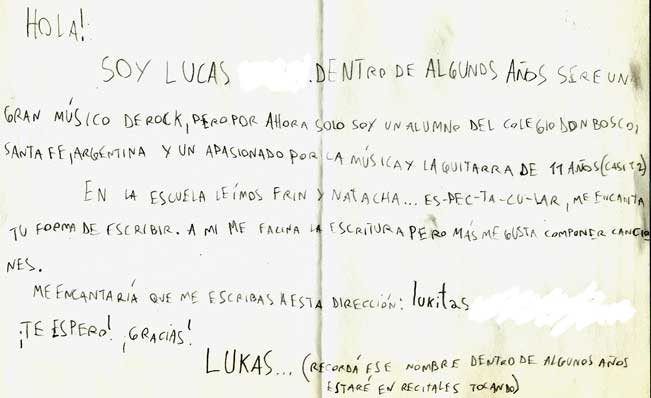 HOLA!
SOY LUCAS . DENTRO DE ALGUNOS AÑOS SERE UN
GRAN MÚSICO DE ROCK, PERO POR AHORA SOLO SOY UN ALUMNO DEL COLEGIO DON BOSCO,
SANTA FE, ARGENTINA Y UN APASIONADO POR LA MÚSICA Y LA GUITARRA DE 11 AÑOS (CASI 12)
EN LA ESCUELA LEÍMOS FRIN Y NATACHA... ES-PEC-TA-CU-LAR, ME ENCANTA
TU FORMA DE ESCRIBIR. A MI ME FACINA LA ESCRITURA PERO MÁS ME GUSTA COMPONER CANCIO
NES.
ME ENCANTARÍA QUE ME ESCRIBAS A ESTA DIRECCIÓN: lukitas
¡TE ESPERO! ¡GRACIAS!
LUKAS... (RECORDÁ ESE NOMBRE DENTRO DE ALGUNOS AÑOS
ESTARÉ EN RECITALES TOCANDO)